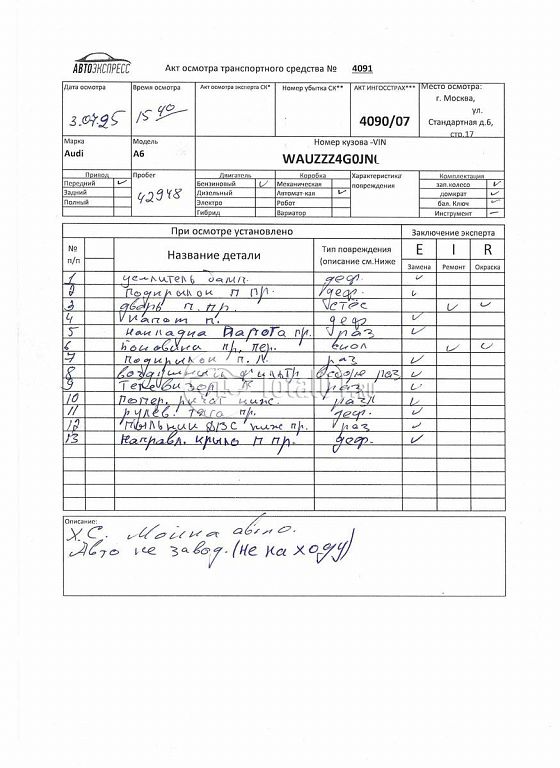 АВТОЭКСПРЕСС
Акт осмотра транспортного средства № 4091
Дата осмотра Время осмотра Акт осмотра эксперта СК* Номер убытка СК** АКТ ИНГОССТРАХ*** Место осмотра:
г. Москва,
ул.
Стандартная д.6,
стр.17
3.04.25 15 40 4090/07
Марка Модель Номер кузова -VIN
Audi A6 WAUZZZ4G0JN
Привод Пробег Двигатель Коробка Характеристика повреждения Комплектация
Передний Бензиновый Механическая зап.колесо
Задний 42948 Дизельный Автомат-кая домкрат
Полный Электро Робот бал. Ключ
Гибрид Вариатор Инструмент
При осмотре установлено Заключение эксперта
№ п/п Название детали Тип повреждения (описание см.Ниже E I R
Замена Ремонт Окраска
1 усилитель бамп. деф.
2 Подкрылок п пр. деф.
3 дверь п. пр.
4 капот п. деф
5 накладка пр. раз
6 боковина пр. пер.
7 Подкрылок п. л. раз
8 воздушный фильтр раз
9 Телевизор п раз
10 Попер. рычаг ниж.
11 рулев. тяга пр. деф.
12 Пыльник ДВС ниж пр. раз
13 Направл. крыло п пр. деф.
Описание:
Х.С. Мойка авто.
Авто не завод. (не на ходу)